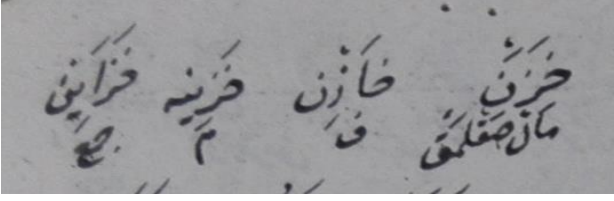 خَزَنَ خَازِن خَزِينه خَزَايِن
مَال صَقلَمَق ف م جمع